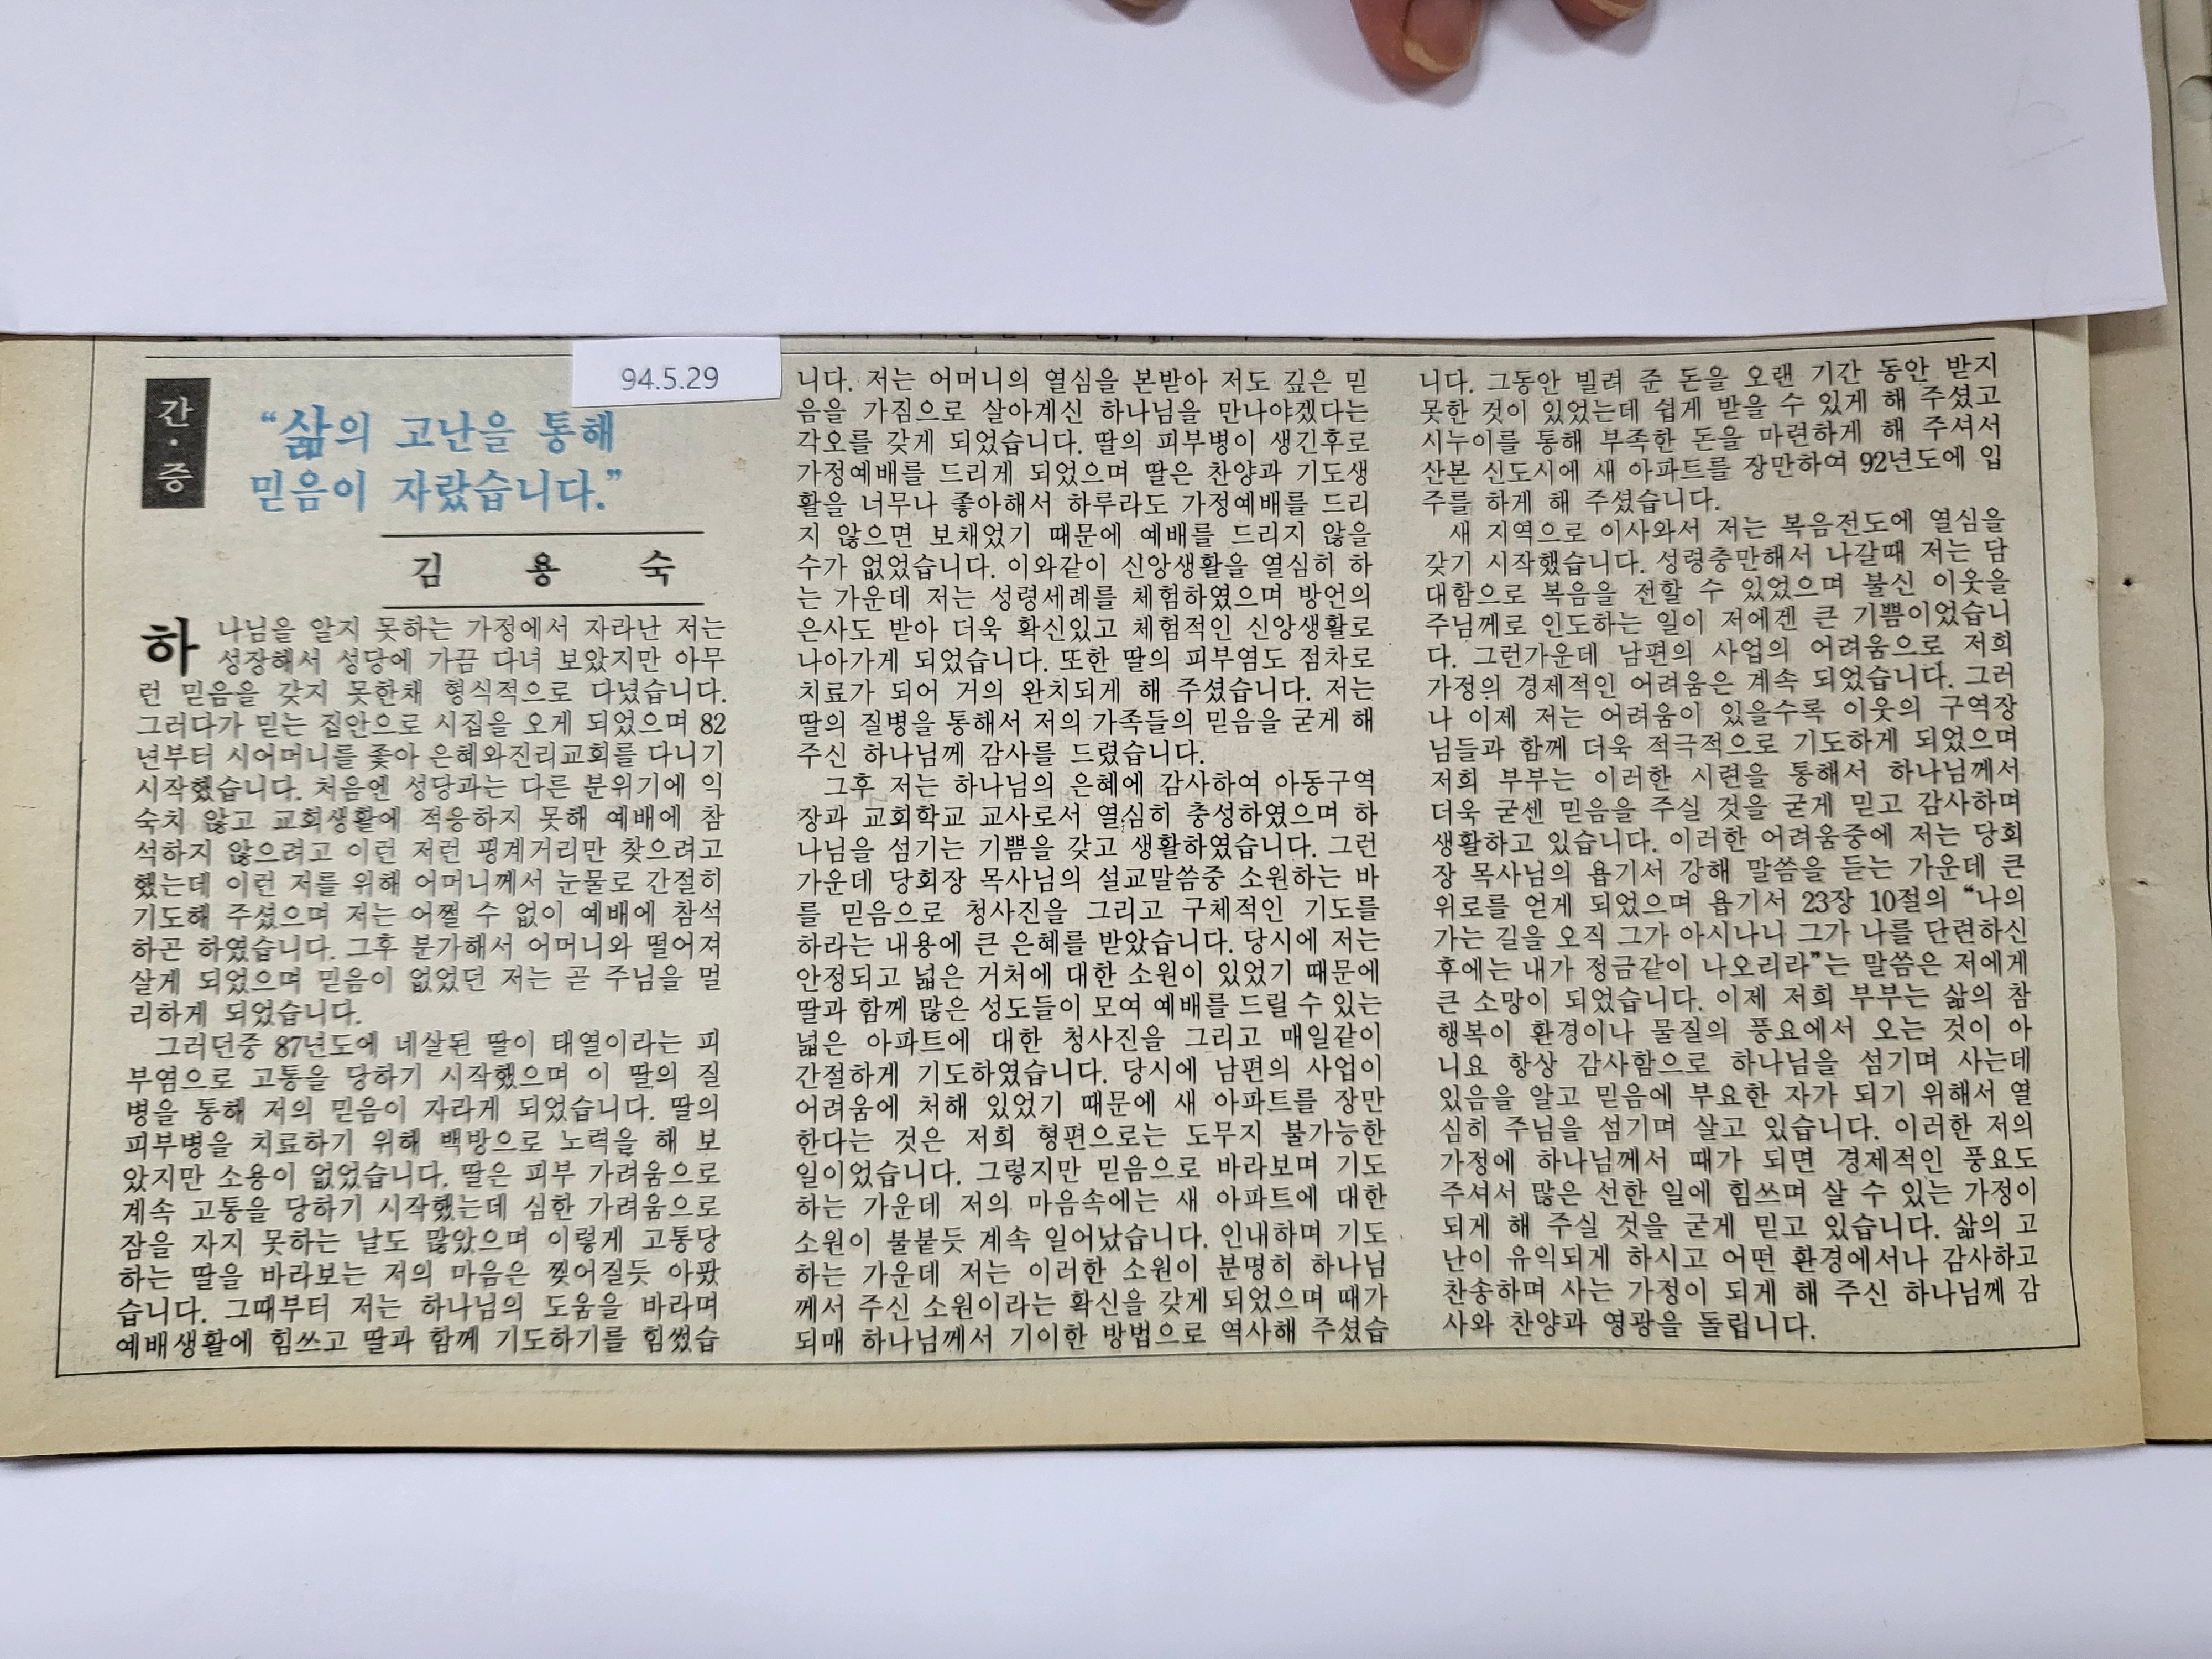 94.5.29
간·증
“삶의 고난을 통해
믿음이 자랐습니다.”
김 용 숙
하나님을 알지 못하는 가정에서 자라난 저는
성장해서 성당에 가끔 다녀 보았지만 아무
런 믿음을 갖지 못한채 형식적으로 다녔습니다.
그러다가 믿는 집안으로 시집을 오게 되었으며 82
년부터 시어머니를 좇아 은혜와진리교회를 다니기
시작했습니다. 처음엔 성당과는 다른 분위기에 익
숙치 않고 교회생활에 적응하지 못해 예배에 참
석하지 않으려고 이런 저런 핑계거리만 찾으려고
했는데 이런 저를 위해 어머니께서 눈물로 간절히
기도해 주셨으며 저는 어쩔 수 없이 예배에 참석
하곤 하였습니다. 그후 분가해서 어머니와 떨어져
살게 되었으며 믿음이 없었던 저는 곧 주님을 멀
리하게 되었습니다.
그러던중 87년도에 네살된 딸이 태열이라는 피
부염으로 고통을 당하기 시작했으며 이 딸의 질
병을 통해 저의 믿음이 자라게 되었습니다. 딸의
피부병을 치료하기 위해 백방으로 노력을 해 보
았지만 소용이 없었습니다. 딸은 피부 가려움으로
계속 고통을 당하기 시작했는데 심한 가려움으로
잠을 자지 못하는 날도 많았으며 이렇게 고통당
하는 딸을 바라보는 저의 마음은 찢어질듯 아팠
습니다. 그때부터 저는 하나님의 도움을 바라며
예배생활에 힘쓰고 딸과 함께 기도하기를 힘썼습
니다. 저는 어머니의 열심을 본받아 저도 깊은 믿
음을 가짐으로 살아계신 하나님을 만나야겠다는
각오를 갖게 되었습니다. 딸의 피부병이 생긴후로
가정예배를 드리게 되었으며 딸은 찬양과 기도생
활을 너무나 좋아해서 하루라도 가정예배를 드리
지 않으면 보채었기 때문에 예배를 드리지 않을
수가 없었습니다. 이와같이 신앙생활을 열심히 하
는 가운데 저는 성령세례를 체험하였으며 방언의
은사도 받아 더욱 확신있고 체험적인 신앙생활로
나아가게 되었습니다. 또한 딸의 피부염도 점차로
치료가 되어 거의 완치되게 해 주셨습니다. 저는
딸의 질병을 통해서 저의 가족들의 믿음을 굳게 해
주신 하나님께 감사를 드렸습니다.
그후 저는 하나님의 은혜에 감사하여 아동구역
장과 교회학교 교사로서 열심히 충성하였으며 하
나님을 섬기는 기쁨을 갖고 생활하였습니다. 그런
가운데 당회장 목사님의 설교말씀중 소원하는 바
를 믿음으로 청사진을 그리고 구체적인 기도를
하라는 내용에 큰 은혜를 받았습니다. 당시에 저는
안정되고 넓은 거처에 대한 소원이 있었기 때문에
딸과 함께 많은 성도들이 모여 예배를 드릴 수 있는
넓은 아파트에 대한 청사진을 그리고 매일같이
간절하게 기도하였습니다. 당시에 남편의 사업이
어려움에 처해 있었기 때문에 새 아파트를 장만
한다는 것은 저희 형편으로는 도무지 불가능한
일이었습니다. 그렇지만 믿음으로 바라보며 기도
하는 가운데 저의 마음속에는 새 아파트에 대한
소원이 불붙듯 계속 일어났습니다. 인내하며 기도
하는 가운데 저는 이러한 소원이 분명히 하나님
께서 주신 소원이라는 확신을 갖게 되었으며 때가
되매 하나님께서 기이한 방법으로 역사해 주셨습
니다. 그동안 빌려 준 돈을 오랜 기간 동안 받지
못한 것이 있었는데 쉽게 받을 수 있게 해 주셨고
시누이를 통해 부족한 돈을 마련하게 해 주셔서
산본 신도시에 새 아파트를 장만하여 92년도에 입
주를 하게 해 주셨습니다.
새 지역으로 이사와서 저는 복음전도에 열심을
갖기 시작했습니다. 성령충만해서 나갈때 저는 담
대함으로 복음을 전할 수 있었으며 불신 이웃을
주님께로 인도하는 일이 저에겐 큰 기쁨이었습니
다. 그런가운데 남편의 사업의 어려움으로 저희
가정의 경제적인 어려움은 계속 되었습니다. 그러
나 이제 저는 어려움이 있을수록 이웃의 구역장
님들과 함께 더욱 적극적으로 기도하게 되었으며
저희 부부는 이러한 시련을 통해서 하나님께서
더욱 굳센 믿음을 주실 것을 굳게 믿고 감사하며
생활하고 있습니다. 이러한 어려움중에 저는 당회
장 목사님의 욥기서 강해 말씀을 듣는 가운데 큰
위로를 얻게 되었으며 욥기서 23장 10절의 “나의
가는 길을 오직 그가 아시나니 그가 나를 단련하신
후에는 내가 정금같이 나오리라”는 말씀은 저에게
큰 소망이 되었습니다. 이제 저희 부부는 삶의 참
행복이 환경이나 물질의 풍요에서 오는 것이 아
니요 항상 감사함으로 하나님을 섬기며 사는데
있음을 알고 믿음에 부요한 자가 되기 위해서 열
심히 주님을 섬기며 살고 있습니다. 이러한 저의
가정에 하나님께서 때가 되면 경제적인 풍요도
주셔서 많은 선한 일에 힘쓰며 살 수 있는 가정이
되게 해 주실 것을 굳게 믿고 있습니다. 삶의 고
난이 유익되게 하시고 어떤 환경에서나 감사하고
찬송하며 사는 가정이 되게 해 주신 하나님께 감
사와 찬양과 영광을 돌립니다.